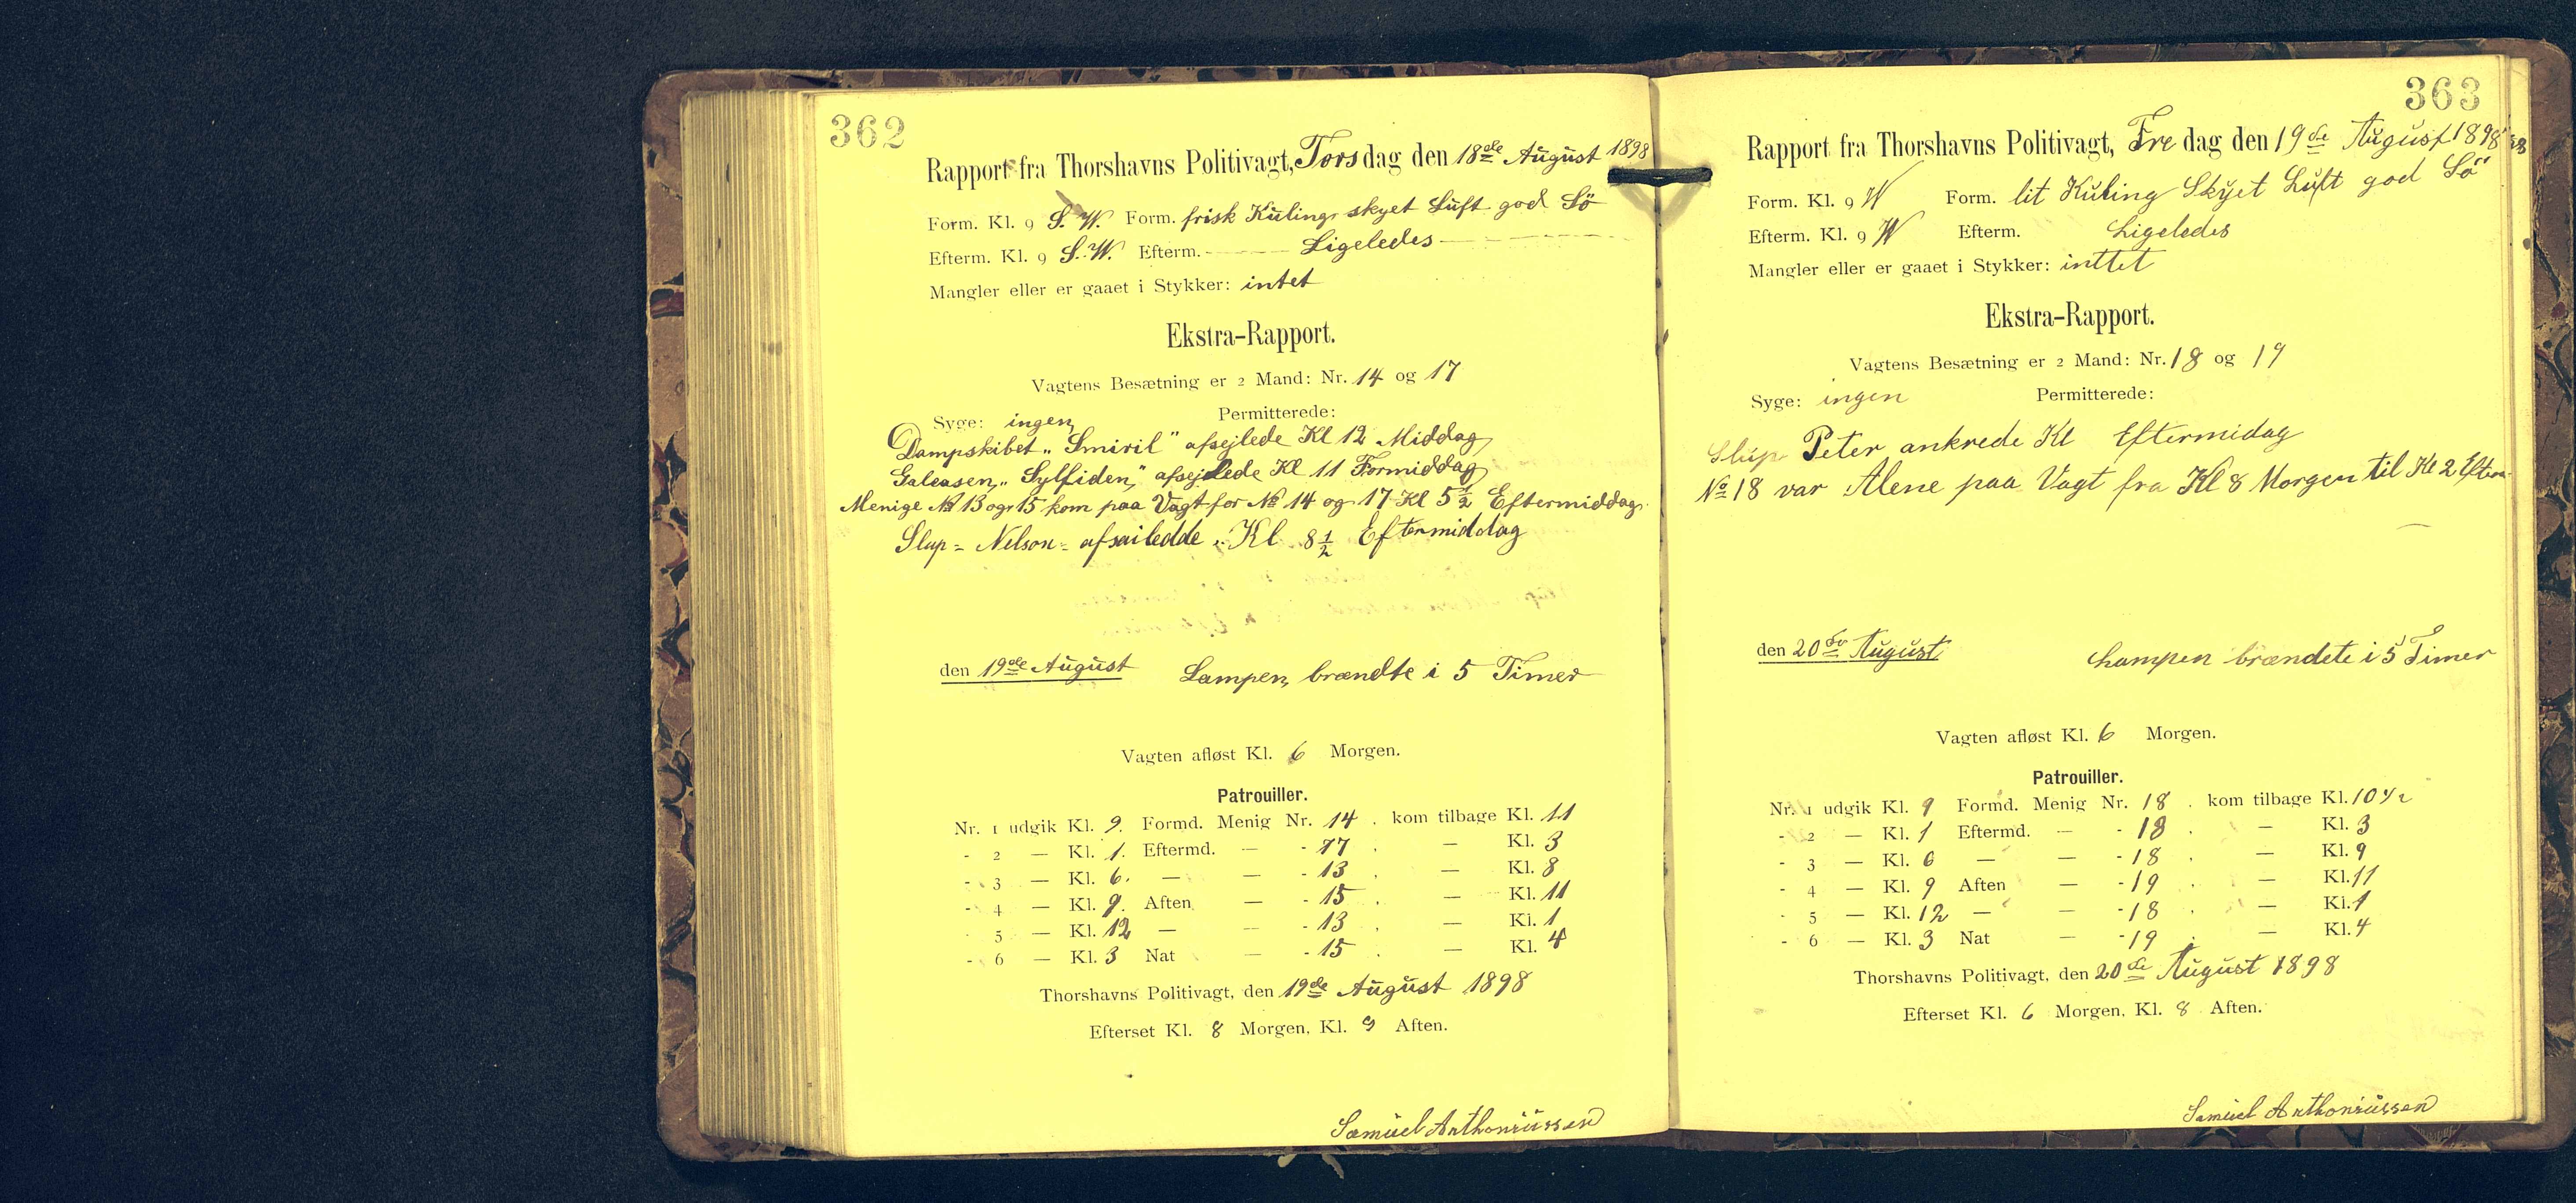 362
Rapport fra Thorshavns Politivagt, Torsdag den 18de August 1898
Form. Kl. 9 S.W. Form. frisk Kuling skyet Luft god Sö
Efterm. Kl. 9 S.W. Efterm. Ligeledes
Mangler eller er gaaet i Stykker: intet
Ekstra-Rapport.
Vagtens Besætning er 2 Mand: Nr. 14 og 17
Syge: ingen Permitterede:
Dampskibet „Smiril" afsejlede Kl 12 Middag
Galeasen „Sylfiden" afsejlede Kl 11 Formiddag
Menige No 13 og 15 kom paa Vagt for No 14 og 17 Kl 5½ Eftermiddag.
Slup = Nelson = afsailedde Kl 8½ Eftermiddag
den 19de August Lampen brændte i 5 Timer
Vagten afløst Kl. 6 Morgen.
Patrouiller.
Nr. 1 udgik Kl. 9. Formd. Menig Nr. 14 . kom tilbage Kl. 11
- 2 — Kl. 1. Eftermd. — - 17 . — Kl. 3
- 3 — Kl. 6. — — - 13 . — Kl. 8
- 4 — Kl. 9. Aften — - 15 . — Kl. 11
- 5 — Kl. 12 — — - 13 . — Kl. 1
- 6 — Kl. 3 Nat — - 15 . — Kl. 4
Thorshavns Politivagt, den 19de August 1898
Efterset Kl. 8 Morgen, Kl. 9 Aften.
Samuel Anthoniussen
363
Rapport fra Thorshavns Politivagt, Fredag den 19de August 1898
Form. Kl. 9 W Form. lit Kuling Skyet Luft god Sö
Efterm. Kl. 9 W Efterm. Ligeledes
Mangler eller er gaaet i Stykker: inttet
Ekstra-Rapport.
Vagtens Besætning er 2 Mand: Nr. 18 og 19
Syge: ingen Permitterede:
Slup Peter ankrede Kl Eftermidag
No 18 var Alene paa Vagt fra Kl 8 Morgen til Kl 2 Efterm
den 20de August Lampen brændete i 5 Timer
Vagten afløst Kl. 6 Morgen.
Patrouiller.
Nr. 1 udgik Kl. 9 Formd. Menig Nr. 18 . kom tilbage Kl. 10 1/2
- 2 — Kl. 1 Eftermd. — - 18 . — Kl. 3
- 3 — Kl. 6 — — - 18 . — Kl. 9
- 4 — Kl. 9 Aften — - 19 . — Kl. 11
- 5 — Kl. 12 — — - 18 . — Kl. 1
- 6 — Kl. 3 Nat — - 19 . — Kl. 4
Thorshavns Politivagt, den 20de August 1898
Efterset Kl. 6 Morgen, Kl. 8 Aften.
Samuel Anthoniussen